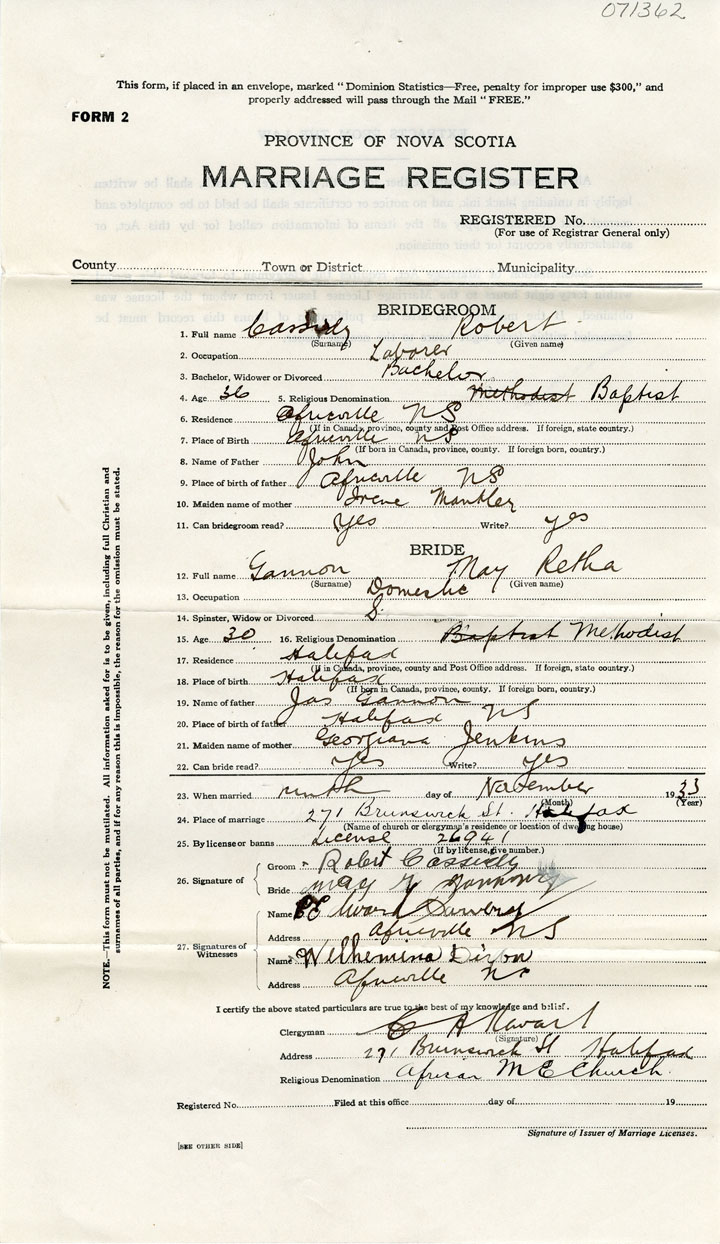 071362
This form, if placed in an envelope, marked "Dominion Statistics—Free, penalty for improper use $300," and
properly addressed will pass through the Mail "FREE."
FORM 2
PROVINCE OF NOVA SCOTIA
MARRIAGE REGISTER
REGISTERED No.
(For use of Registrar General only)
County Town or District Municipality
BRIDEGROOM
1. Full name Cassidy Robert
(Surname) (Given name)
2. Occupation Laborer
3. Bachelor, Widower or Divorced Bachelor
4. Age 36 5. Religious Denomination Methodist Baptist
6. Residence Africville NS
(If in Canada, province, county and Post Office address. If foreign, state country.)
7. Place of Birth Africville NS
(If born in Canada, province, county. If foreign born, country.)
8. Name of Father John
9. Place of birth of father Africville NS
10. Maiden name of mother Irene Mantley
11. Can bridegroom read? Yes Write? yes
BRIDE
12. Full name Gannon May Retha
(Surname) (Given name)
13. Occupation Domestic
14. Spinster, Widow or Divorced S.
15. Age 30 16. Religious Denomination Baptist Methodist
17. Residence Halifax
(If in Canada, province, county and Post Office address. If foreign, state country.)
18. Place of birth Halifax
(If born in Canada, province, county. If foreign born, country.)
19. Name of father Jas Gannon
20. Place of birth of father Halifax NS
21. Maiden name of mother Georgiana Jenkins
22. Can bride read? Yes Write? Yes
23. When married ninth day of November 1933
(Month) (Year)
24. Place of marriage 271 Brunswick St. Halifax
(Name of church or clergyman's residence or location of dwelling house)
25. By license or banns License 26941
(If by license, give number.)
26. Signature of Groom Robert Cassidy
Bride May
27. Signatures of Witnesses
Name Edward
Address Africville NS
Name Wilhemina Dixon
Address Africville NS
I certify the above stated particulars are true to the best of my knowledge and belief.
Clergyman
(Signature)
Address 271 Brunswick St Halifax
Religious Denomination African M E Church.
Registered No. Filed at this office day of 19
Signature of Issuer of Marriage Licenses.
[SEE OTHER SIDE]
NOTE.—This form must not be mutilated. All information asked for is to be given, including full Christian and
surnames of all parties, and if for any reason this is impossible, the reason for the omission must be stated.